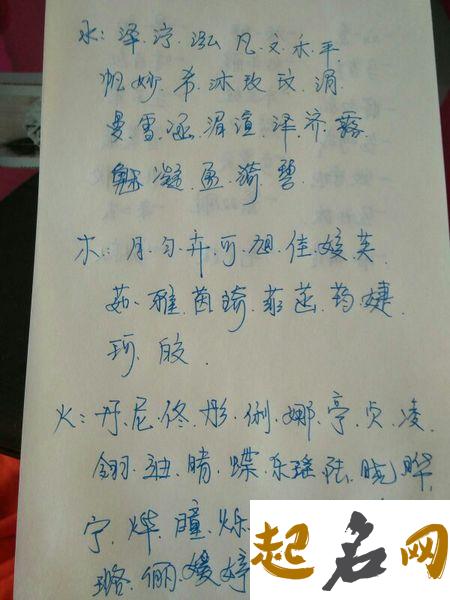 水: 泽.泞.泓.凡.文.禾.平.
帆.妙.希.沐.玫.玟.湄.
曼.雪.涵.湄.渲.泽.济.露.
魅.凝.盈.漪.碧.
木: 月.匀.卉.可.旭.佳.媛.芙.
茹.雅.茵.琦.菲.茞.药.婕.
珂.皎.
火: 丹.尼.佟.彤.俐.娜.亭.贞.凌.
翎.迪.晴.蝶.东.瑶.陆.晓.晔.
宁.烨.瞳.烁
璐.俪.嫒.婷
起名网